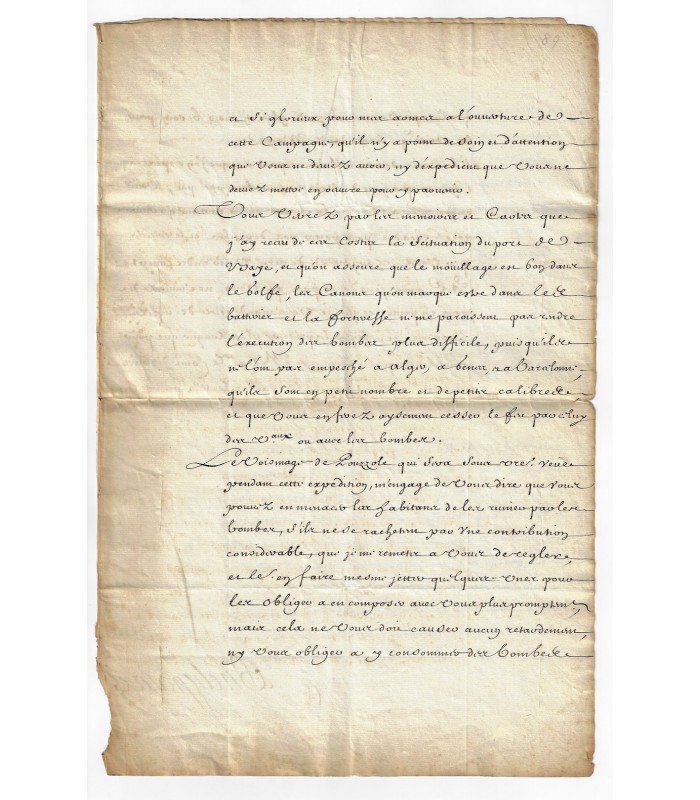 89
et si glorieux pour mes armes a l'ouverture de
cette Campagne, qu'il n'y a point de soin et d'attention
que vous ne deviez avoir, ny d'expedient que vous ne
deviez mettre en œuvre pour y parvenir.
Vous verrez par les memoires et Cartes que
j'ay receu de ces Costes la scituation du port de
Baye, et qu'on asseure que le moüillage est bon dans
le Golfe, les Canons qu'on marque estre dans les
batteries et la forteresse ne me paroissent pas rendre
l'execution des bombes plus difficile, puis qu'ils
ne l'ont pas empesché à Alger, a Genes, et a Barcelonne,
qu'ils sont en petit nombre et de petits calibres
et que vous en ferez aysement cesser le feu par celuy
des v.aux ou avec les bombes.
Le Voisinage de Pouzzole qui sera sous vre. veüe
pendant cette expedition, m'engage de vous dire que vous
pouvez en menacer les habitans de les ruiner par les
bombes, s'ils ne se rachetent par une contribution
considerable, que je me remets a vous de regler,
et les en faire mesme jetter quelques unes pour
les obliger a en composer avec vous plus promptem.
mais cela ne vous doit causer aucun retardement,
ny vous obliger a y consommer des bombes